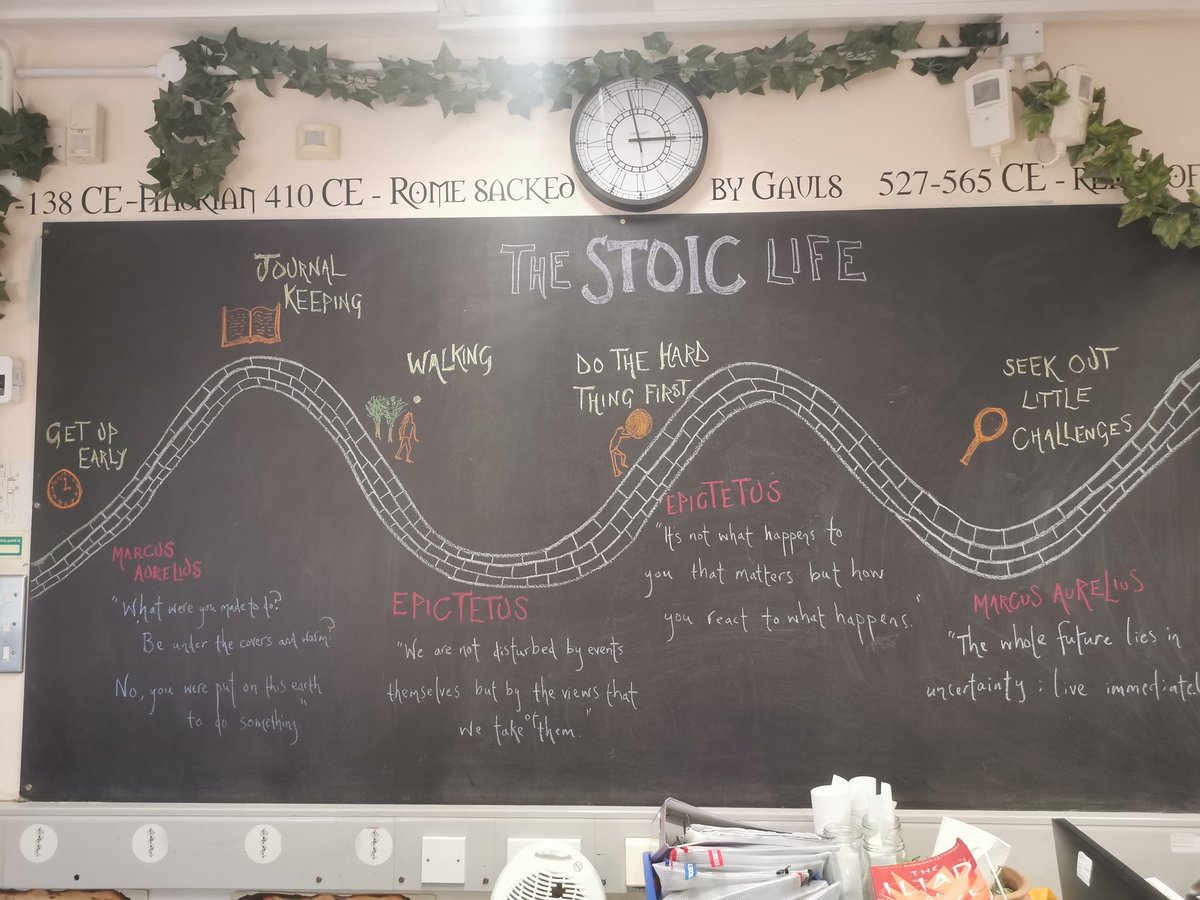 -138 CE-HADRIAN 410 CE - ROME SACKED BY GAULS 527-565 CE - OF
THE STOIC LIFE
JOURNAL
KEEPING
WALKING
DO THE HARD
THING FIRST
SEEK OUT
LITTLE
CHALLENGES
GET UP
EARLY
MARCUS
AURELIUS
"What were you made to do?
Be under the covers and warm?
No, you were put on this earth
to do something"
EPICTETUS
"We are not disturbed by events
themselves but by the views that
we take of them."
EPICTETUS
"It's not what happens to
you that matters but how
you react to what happens."
MARCUS AURELIUS
"The whole future lies in
uncertainty: live immediatel
THE
ILIAD